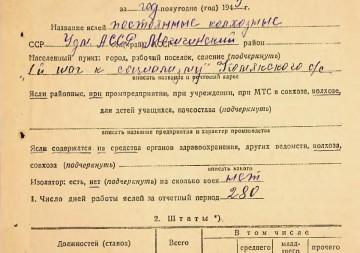 за год полугодие (год) 194
Название яслей постоянные колхозные
ССР Удм. АССР Можгинский район
Населенный пункт: город, рабочий поселок, селение (подчеркнуть)
1й шаг к социализму с/с
вписать название и почтовый адрес
Ясли районные, при промпредприятии, при учреждении, при МТС в совхозе, колхозе,
для детей учащихся, начсостава (подчеркнуть)
вписать название предприятия и характер производства
Ясли содержатся на средства органов здравоохранения, других ведомств, колхоза,
совхоза (подчеркнуть)
вписать какого
Изолятор: есть, нет (подчеркнуть) на сколько коек нет
1. Число дней работы яслей за отчетный период 280
2. Штаты*).
Должностей (ставок)
Всего
В том числе
среднего
млад-
шего
прочего